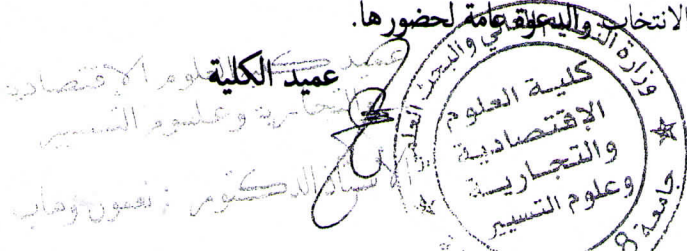 الانتخاب والدعوة عامة لحضورها.
عميد الكلية
عميد كلية العلوم الاقتصادية
والتجارية وعلوم التسيير
الأستاذ الدكتور : نعمون وهاب
وزارة التعليم العالي والبحث العلمي
كلية العلوم
الاقتصادية
والتجارية
وعلوم التسيير
جامعة 8